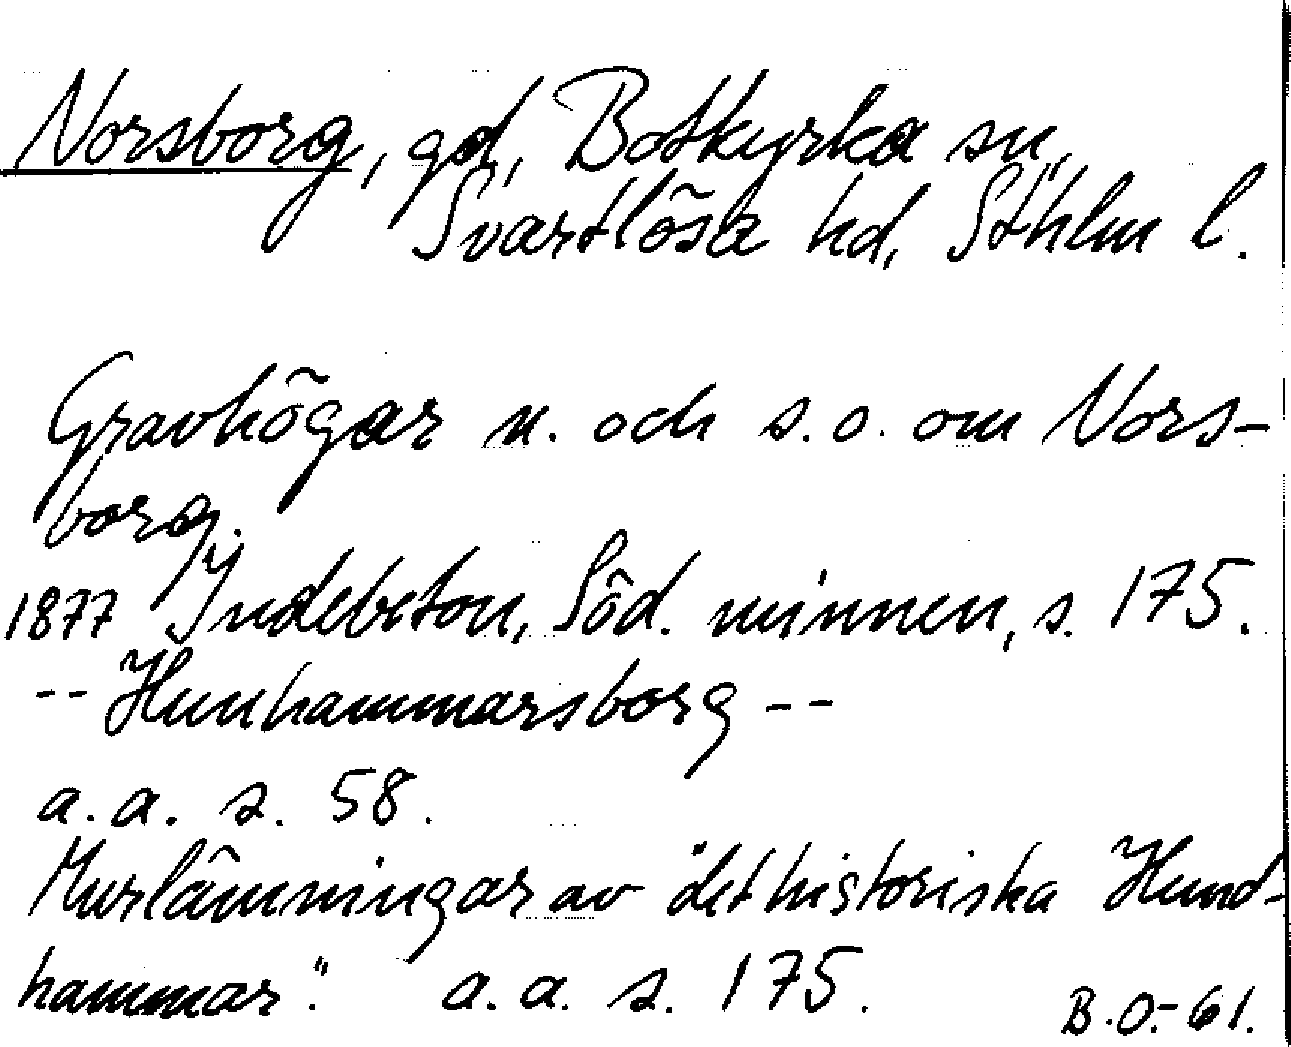 Norsborg, gd, Botkyrka sn,
Svartlösa hd, Sthlm l.
Gravhögar n. och s.o. om Nors-
borg.
1877 Indebetou, Söd. minnen, s. 175.
-- Hunhammarsborg --
a.a. s. 58.
Murlämningar av "det historiska Hund-
hammar". a.a. s. 175.
B.O.-61.